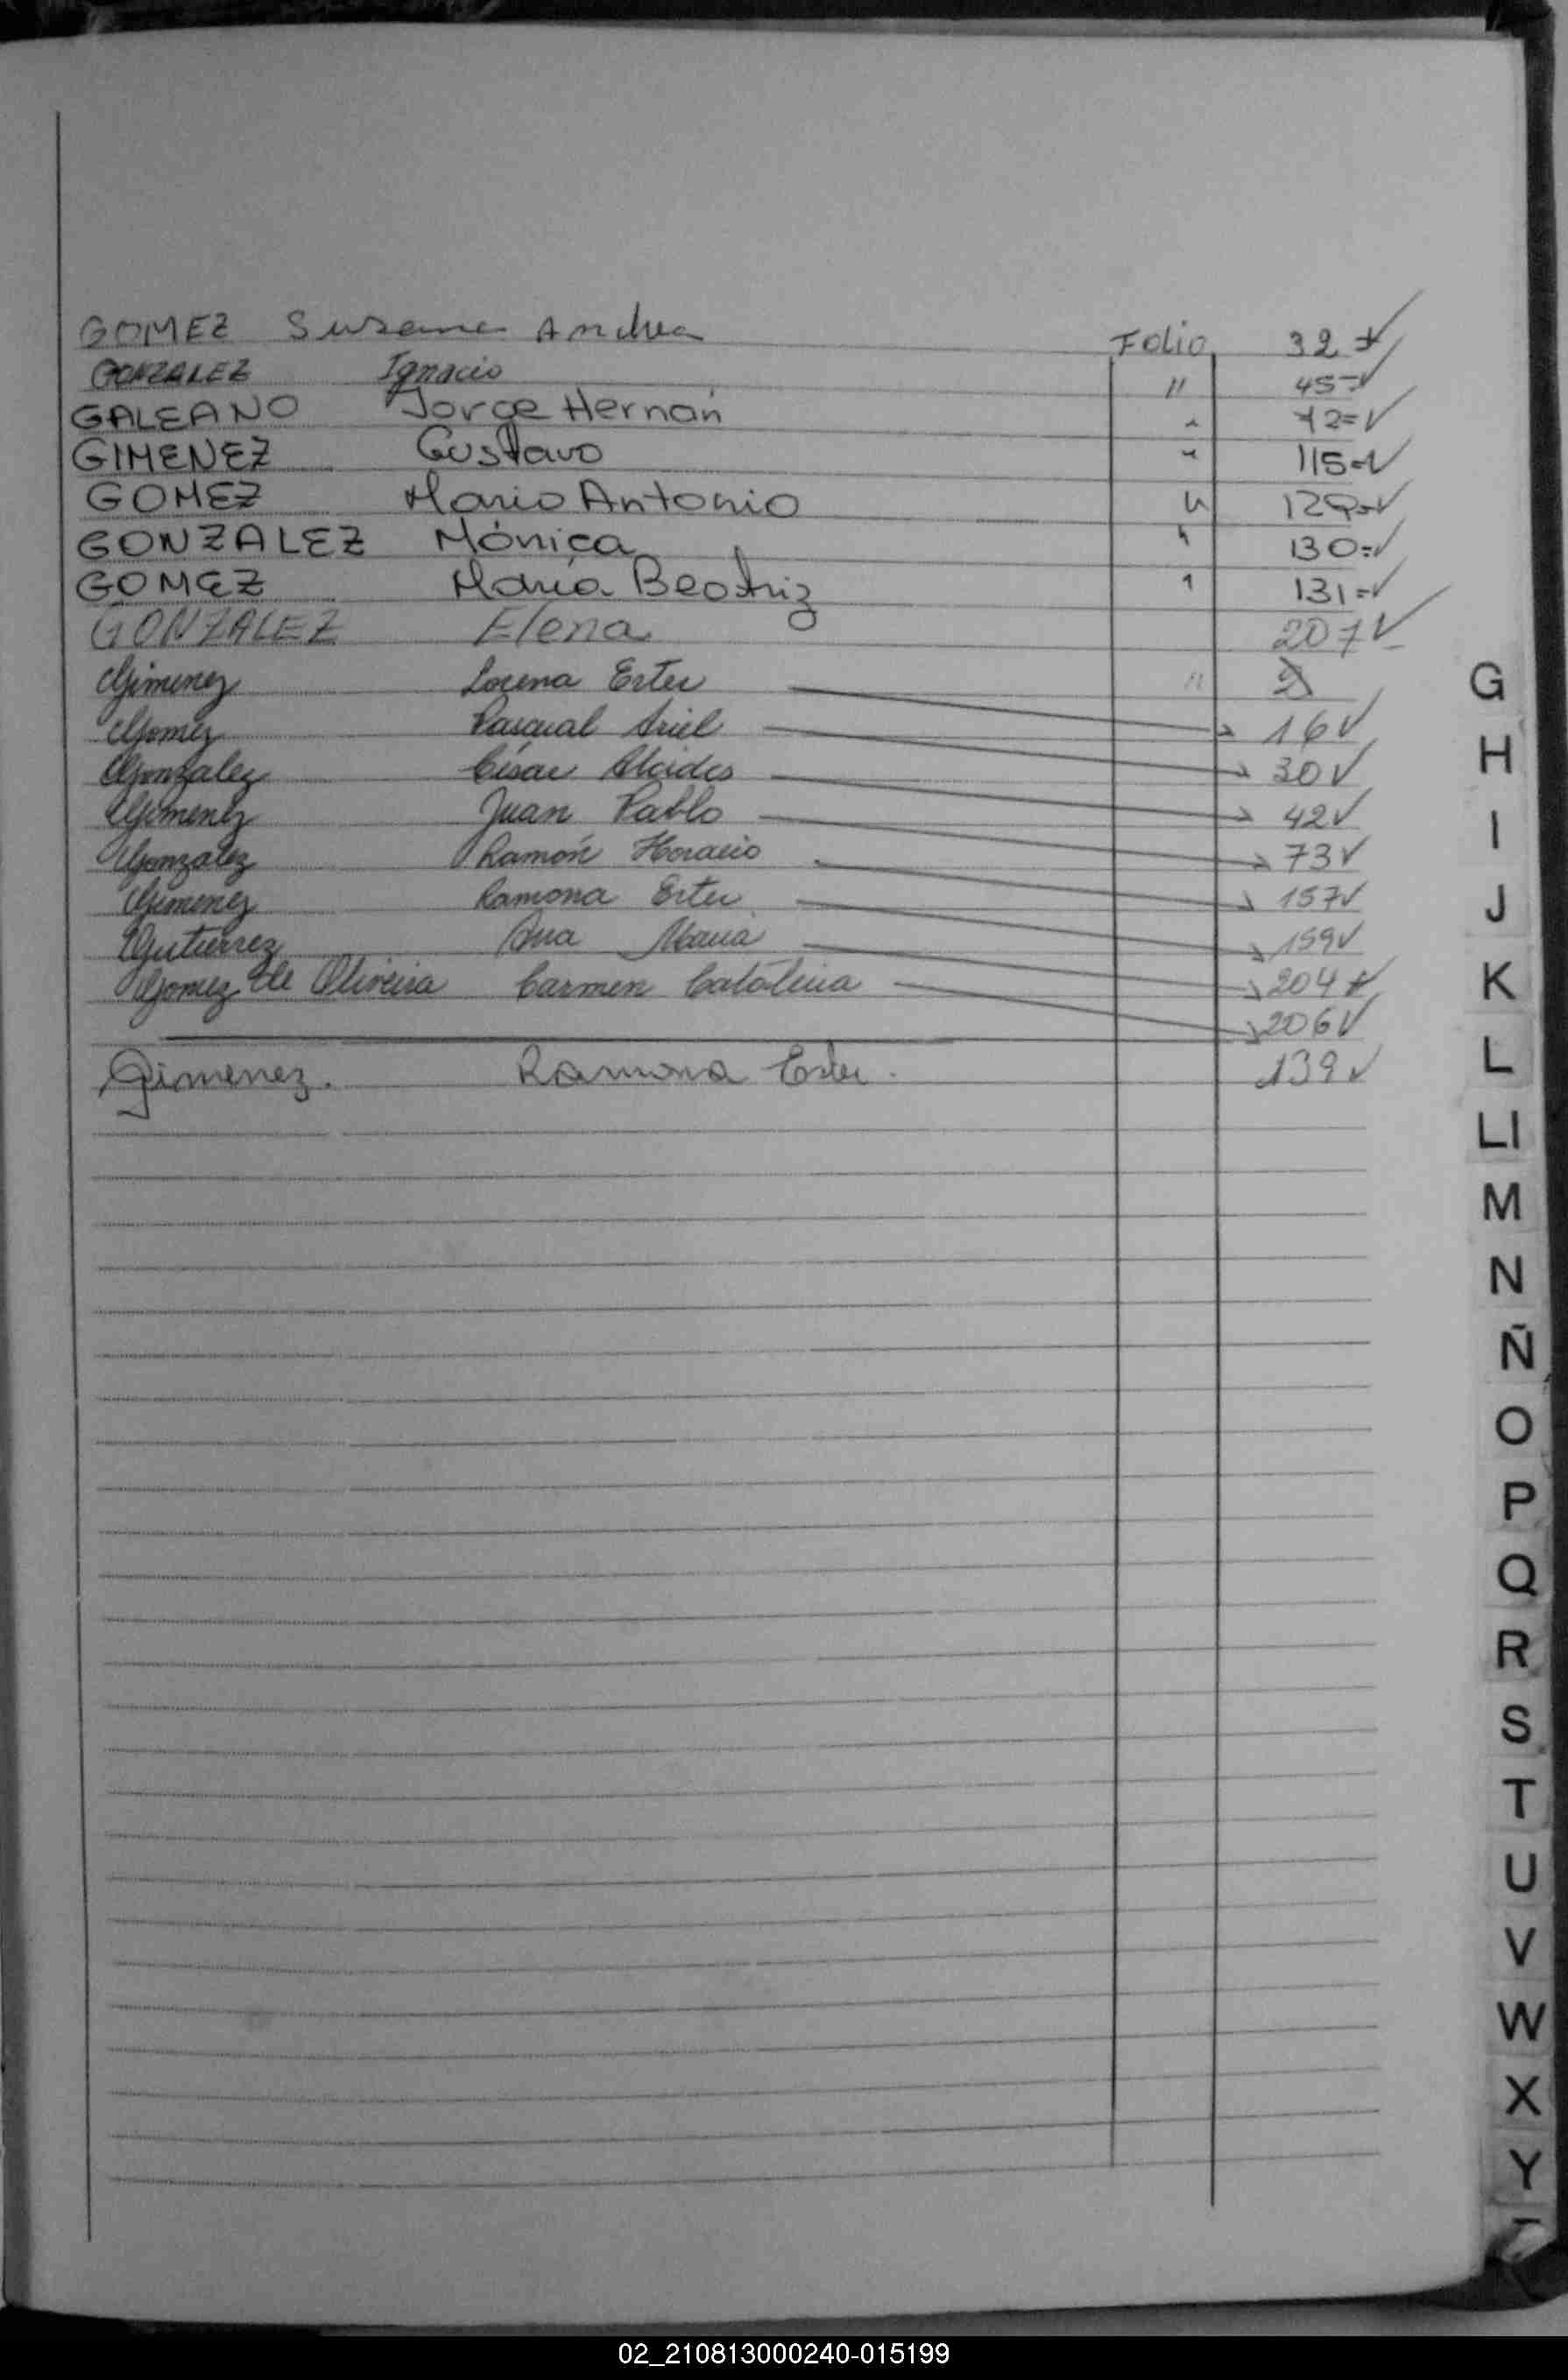 GOMEZ Susana Andrea Folio 32=
GONZALEZ Ignacio " 45=
GALEANO Jorge Hernán " 72=
GIMENEZ Gustavo " 115=
GOMEZ Mario Antonio " 129=
GONZALEZ Mónica " 130=
GOMEZ María Beatriz " 131=
GONZALEZ Elena 207
Gimenez Lorena Ester "
Gomez Pascual Ariel 16
Gonzalez César Alcides 30
Gimenez Juan Pablo 42
Gonzalez Ramón Horacio 73
Gimenez Ramona Ester 157
Gutierrez Ana María 159
Gomez de Oliveira Carmen Catalina 204
206
Gimenez. Ramona Ester. 139
G
H
I
J
K
L
Ll
M
N
Ñ
O
P
Q
R
S
T
U
V
W
X
Y
02_210813000240-015199